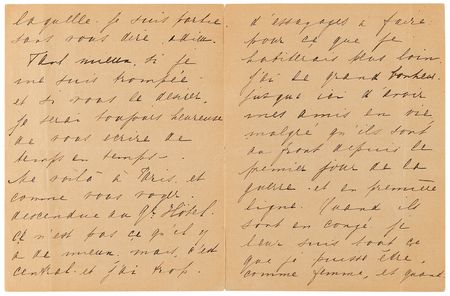 laquelle je suis partie
sans vous dire adieu.
Tant mieux, si je
me suis trompée
et si vous le desirez,
je serai toujours heureuse
de vous ecrire de
temps en temps –
Me voilà à Paris, et
comme vous voyez
descendue au Gd Hôtel.
Ce n'est pas ce qu'il y
a de mieux, mais, c'est
central et j'ai trop
d'essayages à faire
pour ce que je
plus loin.
J'ai le grand bonheur
jusque ici d'avoir
mes amis en vie
malgre qu'ils sont
au front depuis le
premier jour de la
guerre et en première
ligne. Quand ils
sont en congé je
leur suis tout ce
que je puisse être,
comme femme, et quand